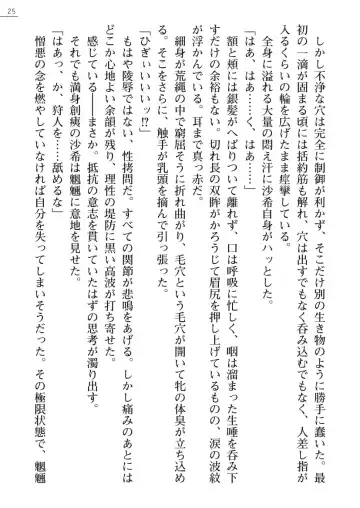 25
しかし不浄な穴は完全に制御が利かず、そこだけ別の生き物のように勝手に蠢いた。最
初の一滴が固まる頃には括約筋も解れ、穴は出すでもなく呑み込むでもなく、人差し指が
入るくらいの輪を広げたまま痙攣している。
全身に溢れる大量の悶え汗に沙希自身がハッとした。
「はぁ、はぁ……く、はぁ……」
額と頬には銀髪がへばりついて離れず、口は呼吸に忙しく、咽は溜まった生唾を呑み下
すだけの余裕もない。切れ長の双眸がかろうじて眉尻を押し上げているものの、涙の波紋
が浮かんでいる。耳まで真っ赤だ。
細身が荒縄の中で窮屈そうに折れ曲がり、毛穴という毛穴が開いて牝の体臭が立ち込め
る。そこをさらに、触手が乳頭を摘んで引っ張った。
「ひぎぃいいいッ!?」
もはや陵辱ではない、性拷問だ。すべての関節が悲鳴をあげる。しかし痛みのあとには
どこか心地よい余韻が残り、理性の堤防に黒い高波が打ち寄せた。
感じている――まさか。抵抗の意志を貫いていたはずの思考が濁り出す。
それでも満身創痍の沙希は魍魎に意地を見せた。
「はあっ、か、狩人を……舐めるな」
憎悪の念を燃やしていなければ自分を失ってしまいそうだ。その極限状態で、魍魎